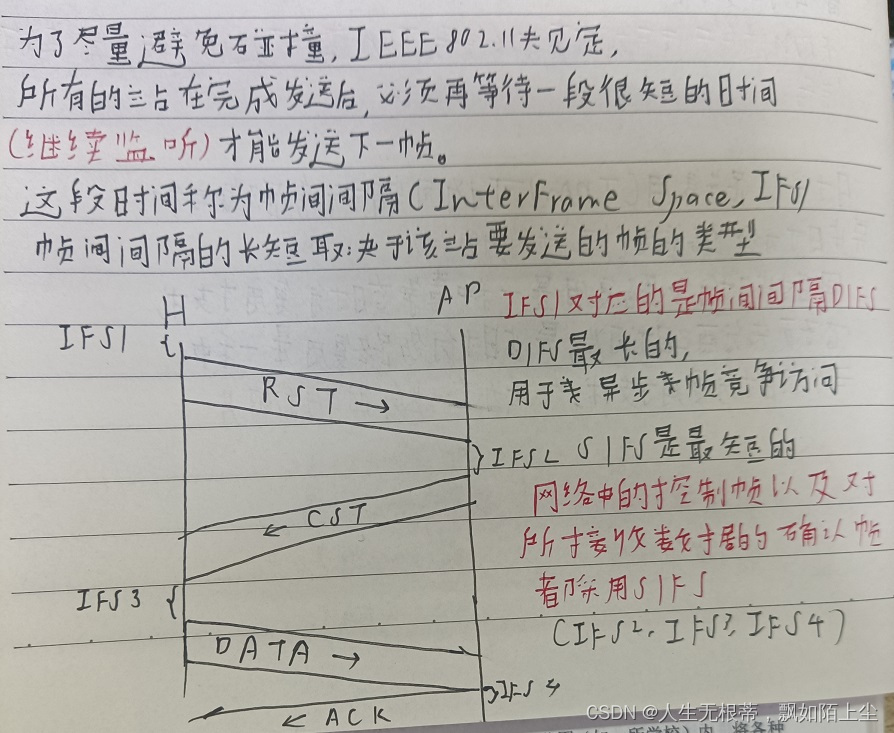 为了尽量避免石並撞,IEEE802.11夫见定,
所有的站在完成发送后,必须再等待一段很短的日时间
(继续监听)才能发送下一帧。
这段时间称为帧间间隔(InterFrame Space,IFS)
帧间间隔的长短取决于该站要发送的帧的类型
H
AP
IFS1对应的是帧间间隔DIFS
IFS1
DIFS最长的,
用于异步帧竞争访问
RST →
IFS2 SIFS是最短的
网络中的控制帧以及对
← CST
所接收数据的确认帧
都采用SIFS
IFS3
(IFS2,IFS3,IFS4)
DATA →
IFS4
← ACK
CSDN @人生无根蒂,飘如陌上尘
所学校)内,将各种